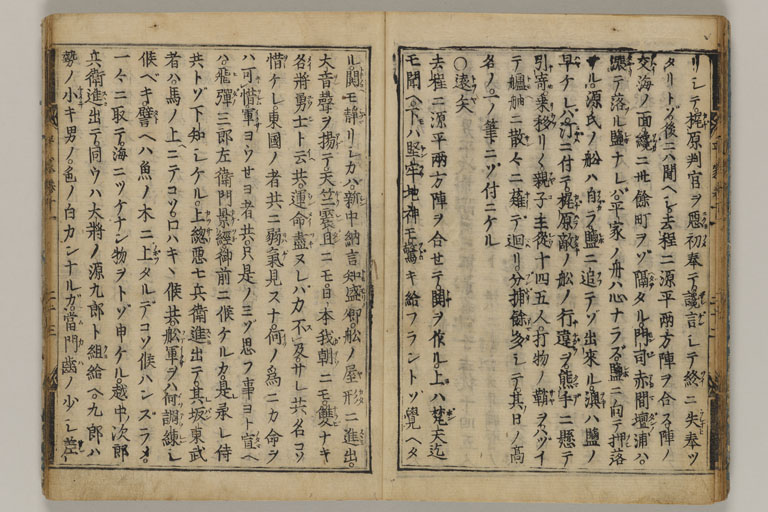 リシテ梶原判官ヲ悪初奉テ讒言シテ終ニ失奉ツ
タリトゾ後ニハ聞ヘシ去程ニ源平両方陣ヲ合ル陣ノ
交海ノ面纔ニ卅余町ヲゾ隔タル門司赤間壇浦ハ
テ落ル塩ナレバ平家ノ舟ハ心ナラズ塩ニ向テ押落
サル源氏ノ舩ハ自ラ塩ニ追テゾ出来ル澳ハ塩ノ
早ケレバ汀ニ付テ梶原敵ノ舩ノ行違ヲ熊手ニ懸テ
引寄乗移リ〳〵親子主従十四五人打物ノ鞘ヲハヅイ
テ艫舳ニ散々ニ薙テ廻リ分捕餘多シテ其日ノ高
名ノ一ノ筆ニゾ付ニケル
〇遠矢
去程ニ源平両方陣ヲ合セテ鬨ヲ作ル上ハ梵天迄
モ聞ヘ下ハ堅牢地神モ驚キ給フラントゾ覚ヘタ
ル鬨モ静リシカバ新中納言知盛卿舩ノ屋形ニ進出
大音声ヲ揚テ天竺震旦ニモ日本我朝ニモ双ナキ
名将勇士ト云共運命尽ヌレバ力不及サレ共名コソ
惜ケレ東国ノ者共ニ弱気見スナ何ノ為ニカ命ヲ
ハ可惜軍ヨウセヨ者共只是ノミゾ思フ事ヨト宣ヘ
ハ飛弾三郎左衛門景経御前ニ候ケルカ是承レ侍
共トゾ下知シケル上総悪七兵衛進出テ其坂東武
者ハ馬ノ上ニテコソ口ハキヽ候共舩軍ヲハ何調練シ
候ベキ譬ヘハ魚ノ木ニ上タルデコソ候ハンズラメ
一々ニ取テ海ニツケナン物ヲトゾ申ケル越中次郎
兵衛進出テ同ウハ大将ノ源九郎ト組給ヘ九郎ハ
勢ノ小キ男ノ色ノ白カンナルカ當門歯ノ少シ差